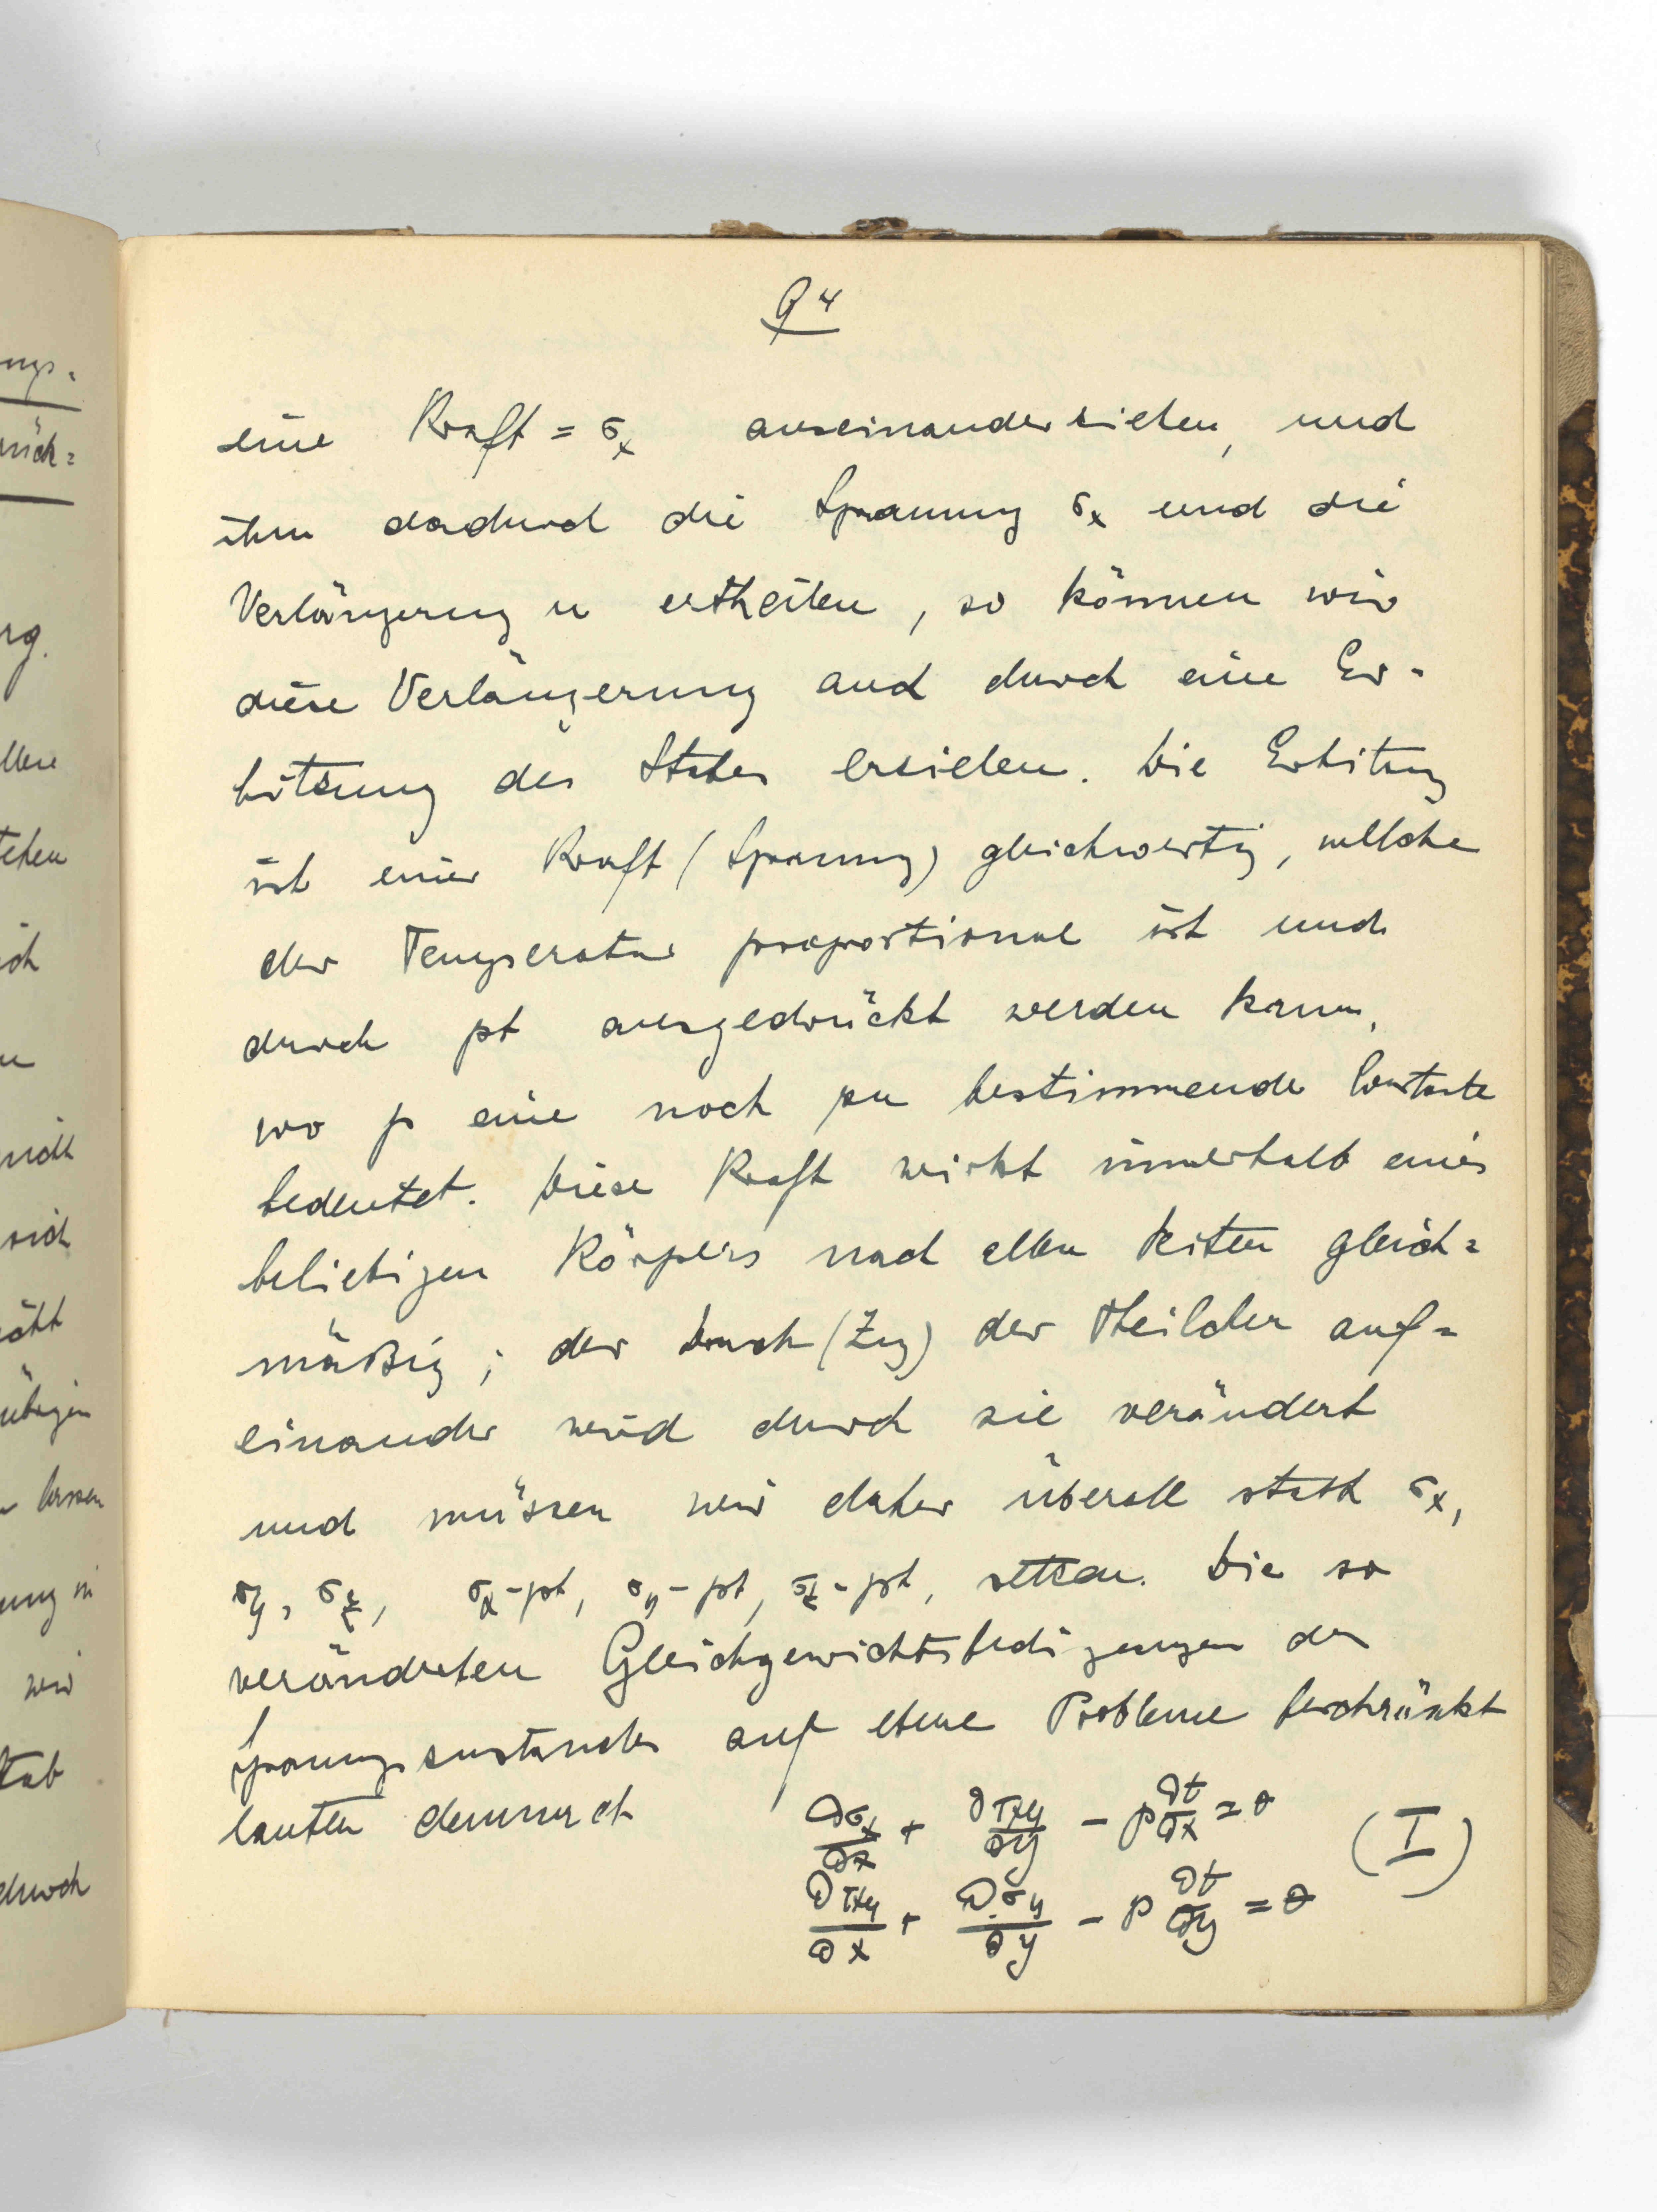 94
eine Kraft = σx auseinanderziehen, und
ihm dadurch die Spannung σx und die
Verlängerung u ertheilen, so können wir
diese Verlängerung auch durch eine Er-
hitzung des Stabes erzielen. Die Erhitzung
ist einer Kraft (Spannung) gleichwertig, welche
der Temperatur proportional ist und
durch pt ausgedrückt werden kann,
wo p eine noch zu bestimmende Constante
bedeutet. Diese Kraft wirkt innerhalb eines
beliebigen Körpers nach allen Seiten gleich=
mäßig; der Druck (Zug) der Theilchen auf=
einander wird durch sie verändert
und müssen wir daher überall statt σx,
σy, σz, σx-pt, σy-pt, σz-pt, setzen. Die so
veränderten Gleichgewichtsbedigungen des
Spannungszustandes auf ebene Probleme beschränkt
lauten demnach ∂σx/∂x + ∂τxy/∂y - p ∂t/∂x = 0 (I)
∂τxy/∂x + ∂σy/∂y - p ∂t/∂y = 0
ngs=
rück=
rg.
llen
tehen
ich
u
nicht
sich
übrigen
lassen
ung in
wir
tab
durch